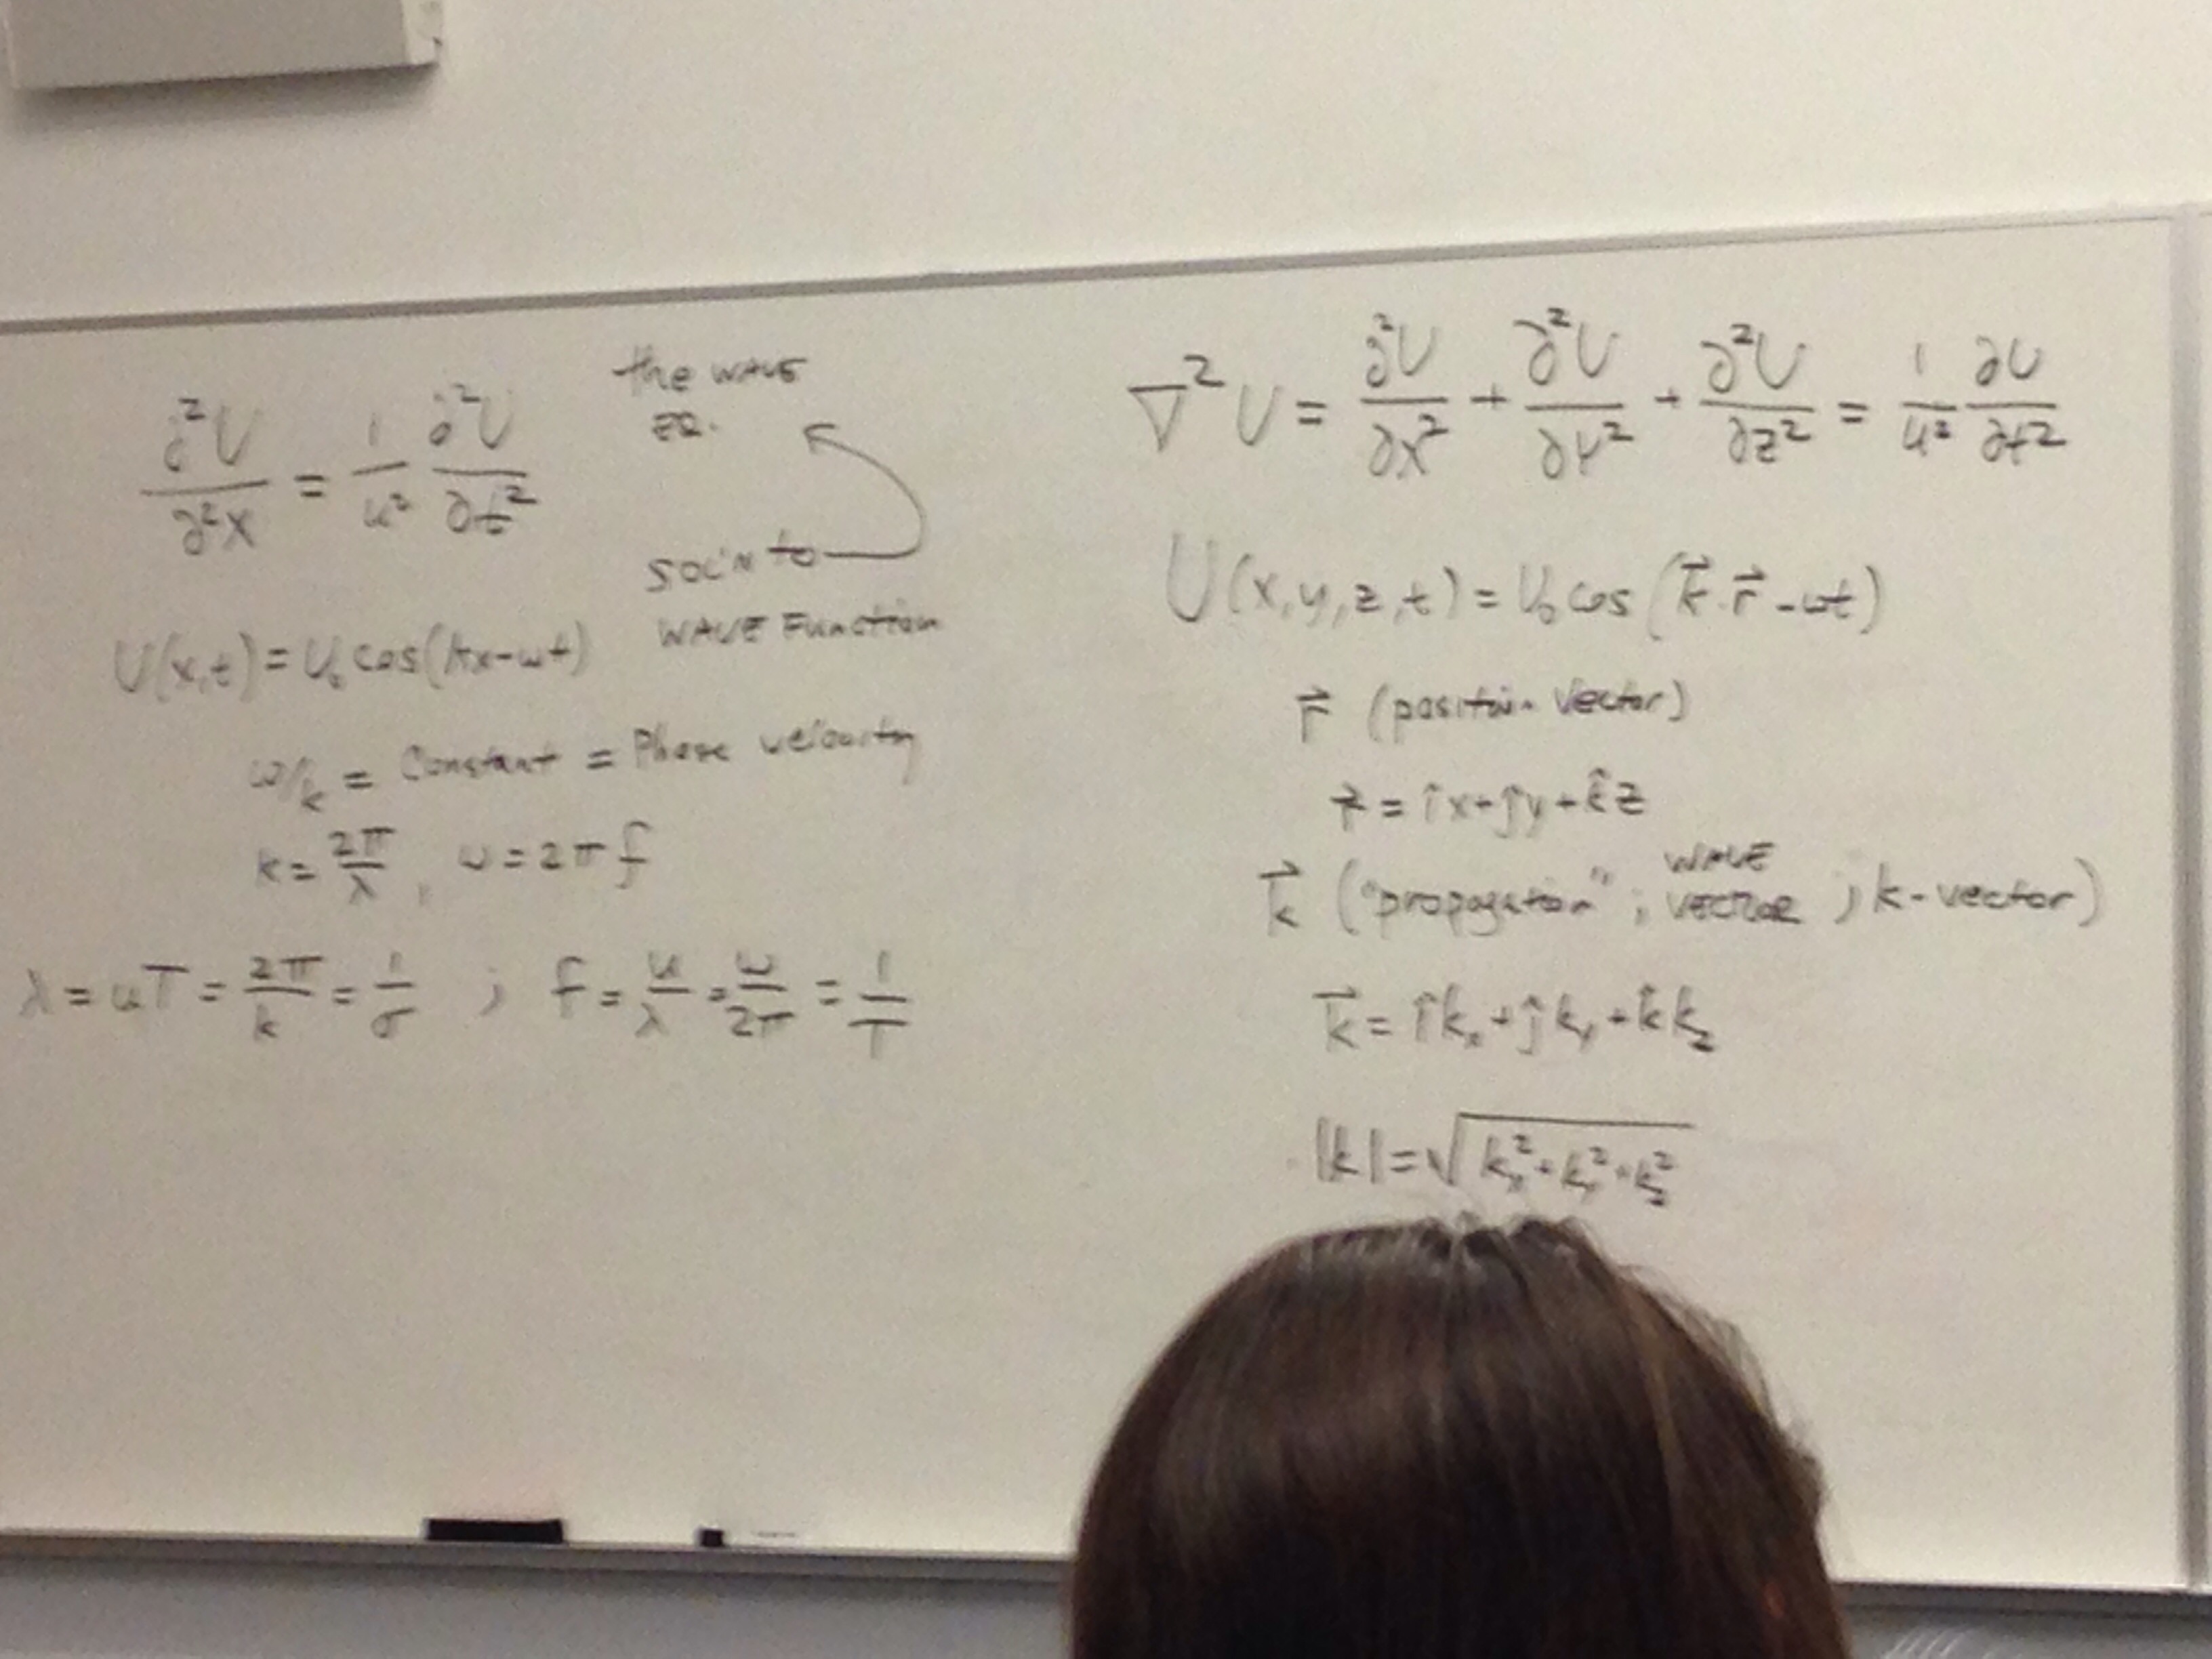 ∂²U/∂²x = 1/u² ∂²U/∂t²
the WAVE
EQ.
SOL'N to
WAVE Function
U(x,t) = U₀ cos(kx-ωt)
ω/k = Constant = Phase velocity
k = 2π/λ , ω = 2πf
λ = uT = 2π/k = 1/σ ; f = u/λ = ω/2π = 1/T
∇²U = ∂²U/∂x² + ∂²U/∂y² + ∂²U/∂z² = 1/u² ∂U/∂t²
U(x,y,z,t) = U₀ cos(k⃗·r⃗-ωt)
r⃗ (position vector)
r⃗ = îx+ĵy+k̂z
k⃗ ("propagation" ; WAVE VECTOR ; k-vector)
k⃗ = îkₓ+ĵk_y+k̂k_z
|k| = √(kₓ²+k_y²+k_z²)